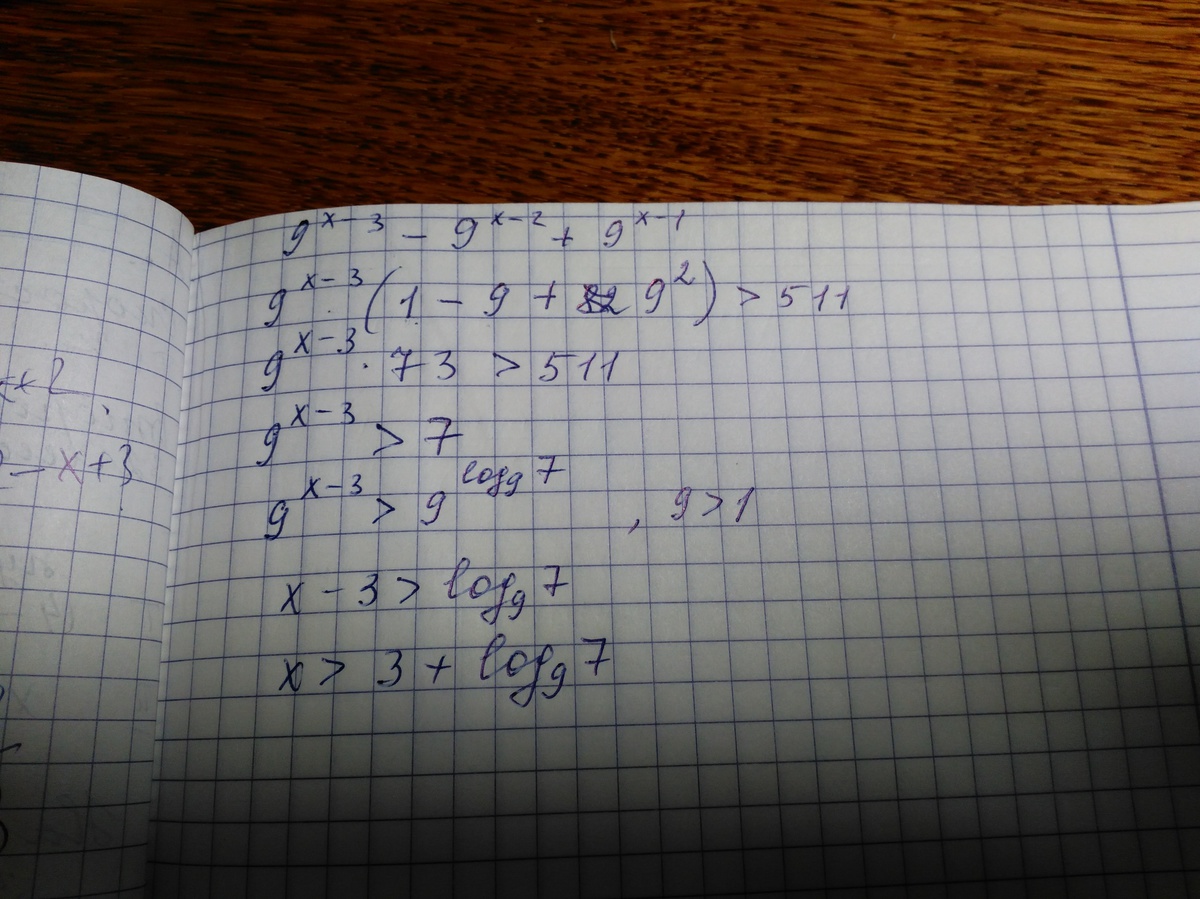 x+2
- x+3
9^{x-3} - 9^{x-2} + 9^{x-1}
9^{x-3} (1 - 9 + 9^2) > 511
9^{x-3} · 73 > 511
9^{x-3} > 7
9^{x-3} > 9^{log_9 7} , 9 > 1
x - 3 > log_9 7
x > 3 + log_9 7